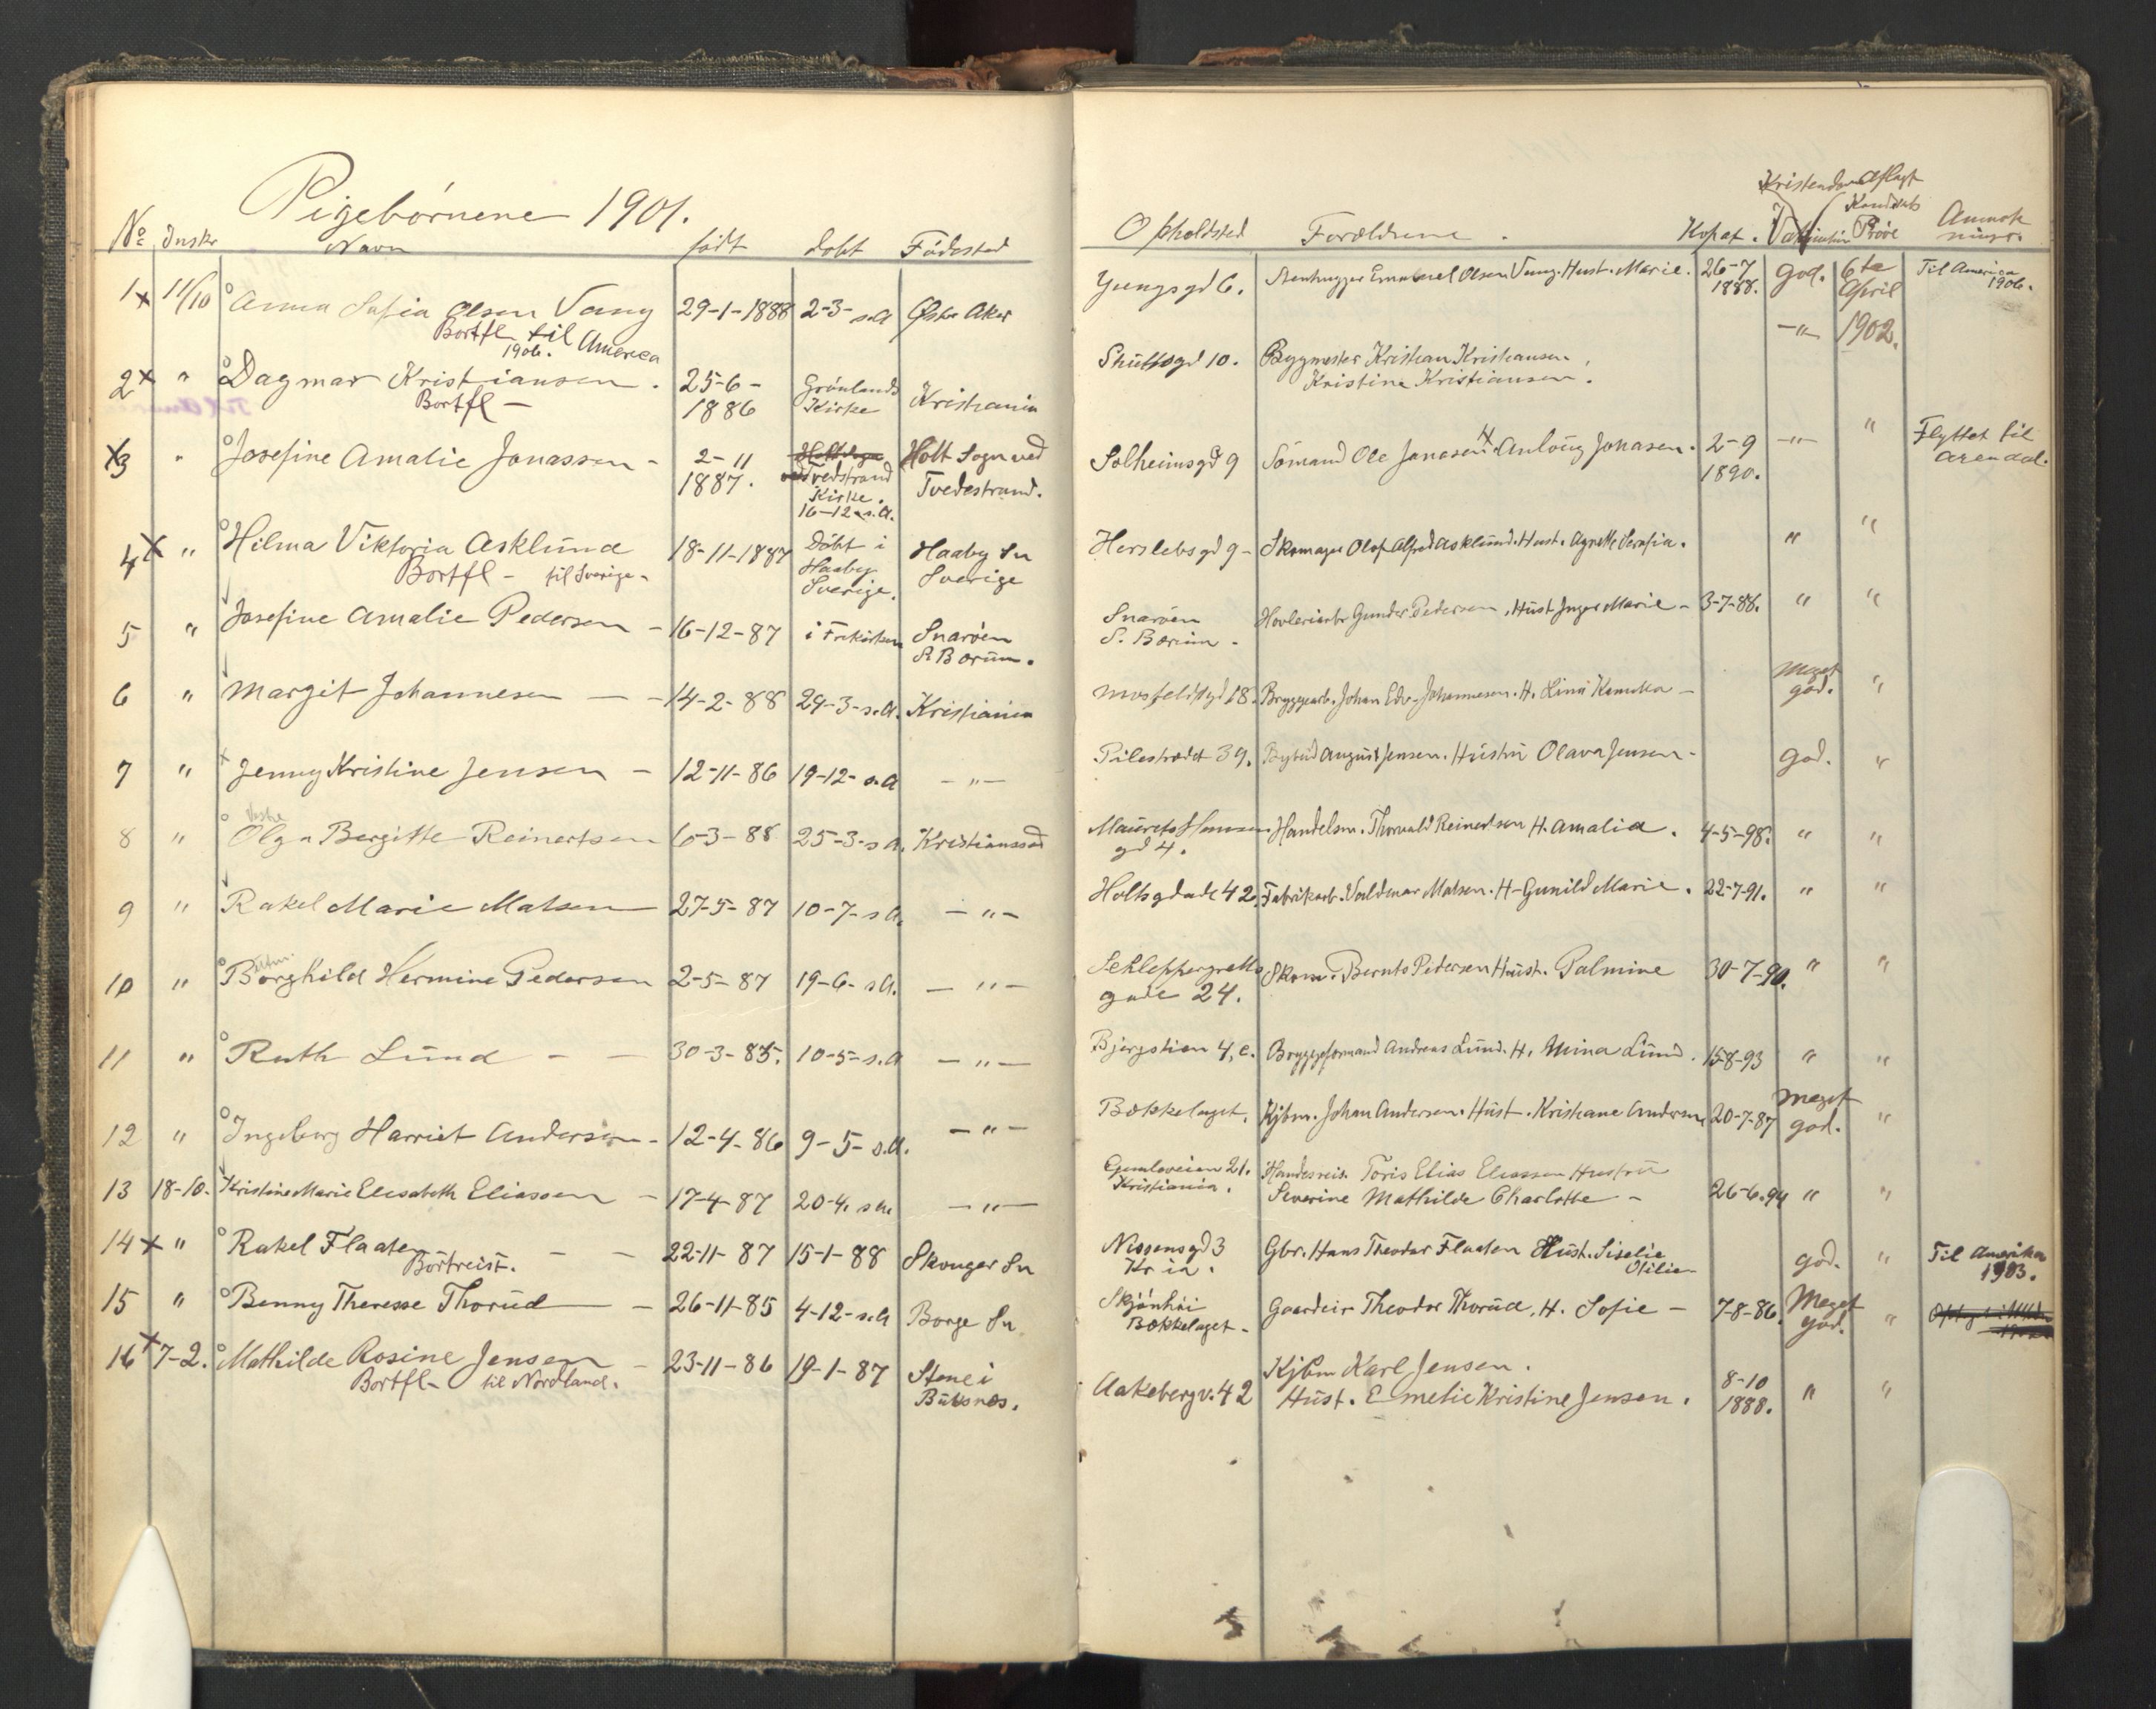 Pigebørnene 1901.
No Inskr Navn født døbt Fødested
1 x 11/10 Anna Sofia Olsen Vang 29-1-1888 2-3- s.A Østre Aker
Bortfl til America
1906.
2 x " Dagmar Kristiansen. 25-6- Grønlands Kristiania
Bortfl - 1886 Kirke
x3 " Josefine Amalie Jonassen - 2-11 Holt Sogn ved
1887. Tvedstrand Tvedestrand.
Kirke.
16-12 s.A.
4 x " Hilma Viktoria Asklund 18-11-1887 Døbt i Haaby Sn
Bortfl - til Sverige - Haaby Sverige
Sverige.
5 " Josefine Amalie Pedersen - 16-12-87 i Frikirken Snarøen
S. Bærum.
6 " Margit Johannesen - - 14-2-88 29-3-s.A. Kristiania
7 " Jenny Kristine Jensen - 12-11-86 19-12-s.A - " -
8 " Olga Bergitte Reinertsen 6-3-88 25-3-s.A. Kristianssad
9 " Rakel Marie Matsen 27-5-87 10-7-s.A. - " -
10 " Borghild Hermine Pedersen 2-5-87 19-6-s.A. - " -
11 " Ruth Lund - - 30-3-85. 10-5-s.A - " -
12 " Ingeborg Harriet Andersen - 12-4-86 9-5-s.A. - " -
13 18-10. Kristine Marie Elisabeth Eliassen - 17-4-87 20-4. s.A. - " -
14 x " Rakel Flaaten - - 22-11-87 15-1-88 Skouger Sn
Bortreist.
15 " Benny Theresse Thorud - 26-11-85 4-12-s.A Borge Sn
16 x 7-2. Mathilde Rosine Jensen - 23-11-86 19-1-87 Stene i
Bortfl - til Nordland. Buksnes.
Kristendom Aflagt
Kundskab
Opholdsted Forældrene. Kopat. Vaksination Prøve Anmærkninger.
Yungsgd 6. Stenhugger Emanuel Olsen Vang. Hust. Marie. 26-7 God. 6te Til America
1888. April 1906.
- " - 1902.
Skultsgd 10. Bygmester Kristian Kristiansen,
Kristine Kristiansen.
Solheimsgd 9 Sømand Ole Jonasen H Anloug Jonasen. 2-9 - " - " Flyttet til
1890. Arendal.
Herslebsgd 9 - Skomager Olof Alfred Asklund. Hust. Agnette Serafia. " "
Snarøen Høvleriarb Gunder Pedersen, Hust Inger Marie - 3-7-88. " "
S. Bærum -
Mosfeldtgd 18. Bryggearb. Johan Edv. Johannesen. H. Lina Kamilla - Meget "
god.
Pilestrædet 39. Bybud August Jensen. Hustru Olava Jensen - god. "
Mauritz Hansen Handelsm. Thorvald Reinertsen H. Amalia. 4-5-98. " "
gd 4.
Holtsgade 42. Fabrikarb. Valdemar Matsen. H - Gunild Marie. 22-7-91. " "
Schleppegrells Skom. Bernts Pedersen Hust. Palmine 30-7-90. " "
gade 24.
Bjergstien 4, e. Bryggeformand Andreas Lund. H. Mina Lund. 15-8-93 " "
Bækkelaget. Kjbm. Johan Andersen. Hust. Kristiane Andersen 20-7-87 Meget "
god.
21. Handelsreis. Toris Elias Eliassen Hustru
Kristiania. Severine Mathilde Charlotte - 26-6.94 " "
Nissensgd 3 Gbr. Hans Theodor Flaaten Hust. Siselie god. " Til Amerika
Kr ia. Otilie - 1903.
Skjønhøi Gaardeier Theodor Thorud, H. Sofie - 7-8-86. Meget "
Bækkelaget - god.
Kjbm Karl Jensen.
Aakebergv. 42 Hust. Emelie Kristine Jensen. 8-10 " "
1888.